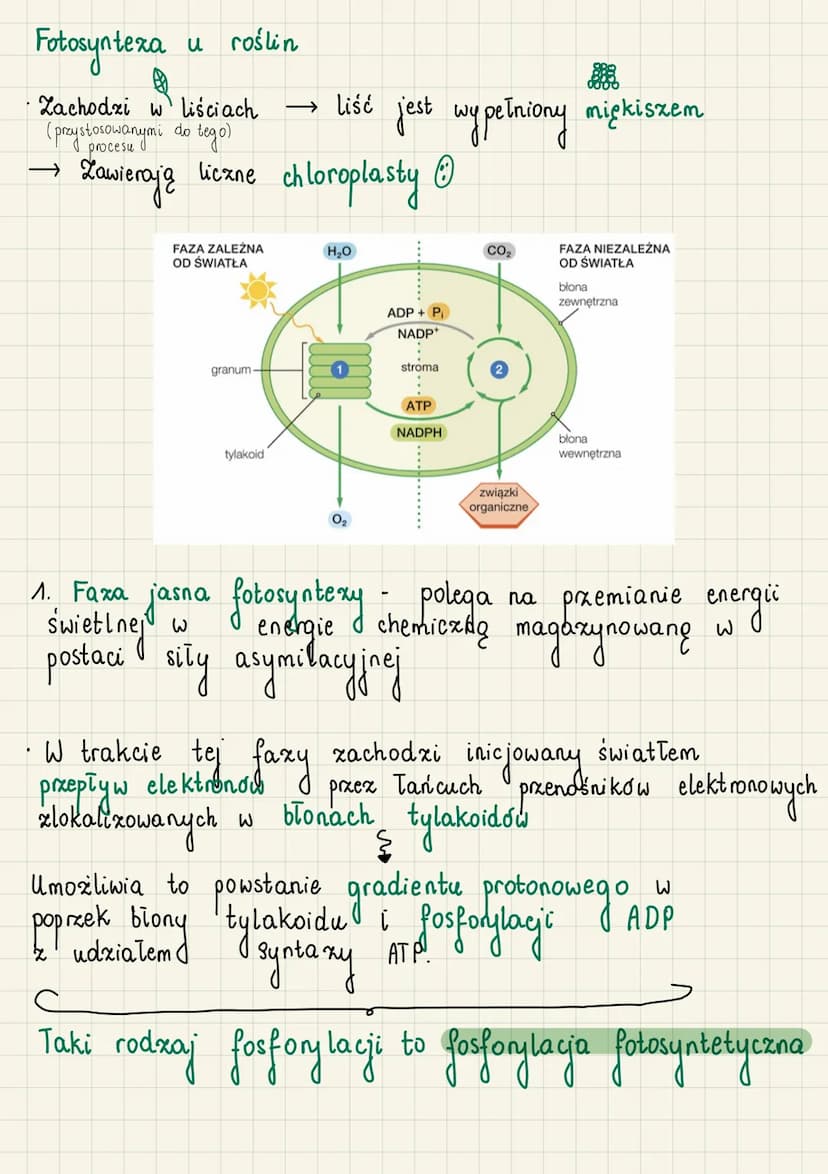 Fotosynteza u roślin
· Zachodzi w liściach → liść jest wypełniony miękiszem
(przystosowanymi do tego)
procesu
→ Zawierają liczne chloroplasty
FAZA ZALEŻNA
OD ŚWIATŁA
H₂O
CO₂
FAZA NIEZALEŻNA
OD ŚWIATŁA
błona
zewnętrzna
ADP + Pᵢ
NADP⁺
granum
1
stroma
2
ATP
NADPH
tylakoid
błona
wewnętrzna
związki
organiczne
O₂
1. Faza jasna fotosyntezy - polega na przemianie energii
świetlnej w energie chemiczną magazynowaną w
postaci siły asymilacyjnej
· W trakcie tej fazy zachodzi inicjowany światłem
przepływ elektronów przez łańcuch przenośników elektronowych
zlokalizowanych w błonach tylakoidów
Umożliwia to powstanie gradientu protonowego w
poprzek błony tylakoidu i fosforylacji ADP
z udziałem syntazy ATP.
Taki rodzaj fosforylacji to fosforylacja fotosyntetyczna